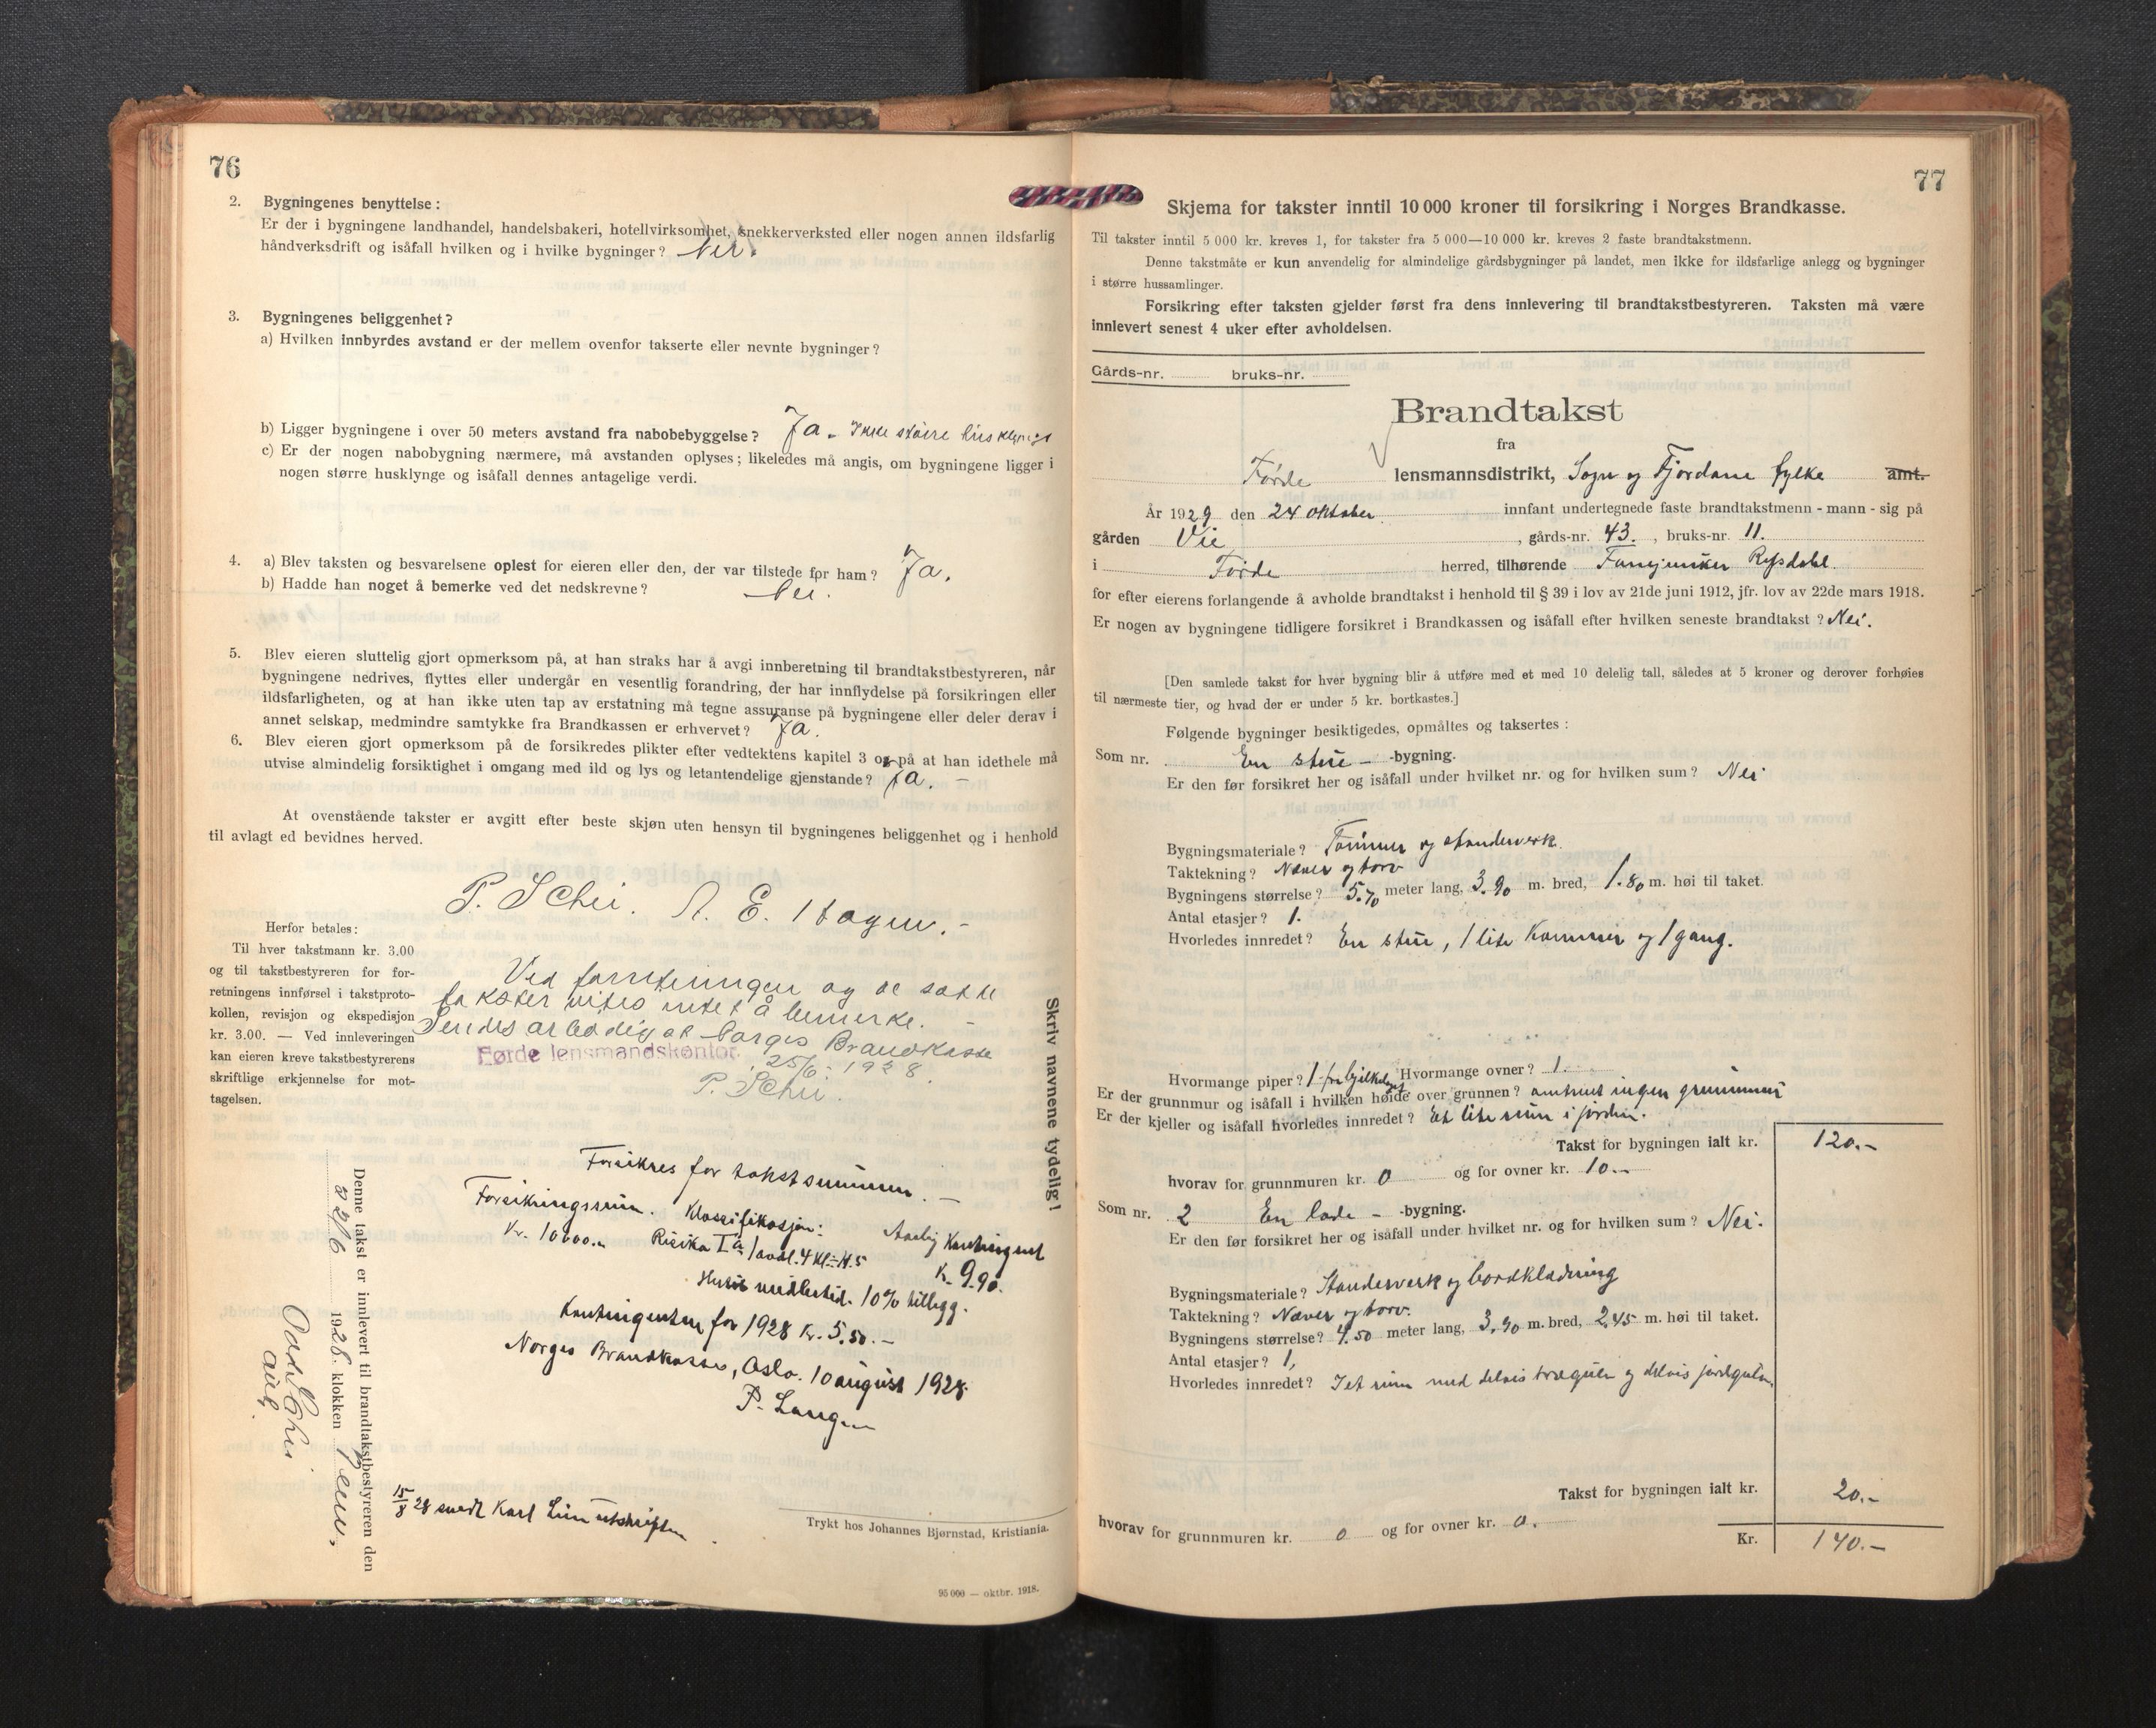 76
2. Bygningenes benyttelse:
Er der i bygningene landhandel, handelsbakeri, hotellvirksomhet, snekkerverksted eller nogen annen ildsfarlig
håndverksdrift og isåfall hvilken og i hvilke bygninger? Nei.
3. Bygningenes beliggenhet?
a) Hvilken innbyrdes avstand er der mellem ovenfor takserte eller nevnte bygninger?
b) Ligger bygningene i over 50 meters avstand fra nabobebyggelse? Ja. Ikke større husklynge
c) Er der nogen nabobygning nærmere, må avstanden oplyses; likeledes må angis, om bygningene ligger i
nogen større husklynge og isåfall dennes antagelige verdi.
4. a) Blev taksten og besvarelsene oplest for eieren eller den, der var tilstede for ham? Ja.
b) Hadde han noget å bemerke ved det nedskrevne? Nei.
5. Blev eieren sluttelig gjort opmerksom på, at han straks har å avgi innberetning til brandtakstbestyreren, når
bygningene nedrives, flyttes eller undergår en vesentlig forandring, der har innflydelse på forsikringen eller
ildsfarligheten, og at han ikke uten tap av erstatning må tegne assuranse på bygningene eller deler derav i
annet selskap, medmindre samtykke fra Brandkassen er erhvervet? Ja.
6. Blev eieren gjort opmerksom på de forsikredes plikter efter vedtektens kapitel 3 og på at han idethele må
utvise almindelig forsiktighet i omgang med ild og lys og letantendelige gjenstande? Ja. —
At ovenstående takster er avgitt efter beste skjøn uten hensyn til bygningenes beliggenhet og i henhold
til avlagt ed bevidnes herved.
P. Schei. A. E. Hagen. -
Herfor betales:
Til hver takstmann kr. 3.00
og til takstbestyreren for for-
retningens innførsel i takstproto-
kollen, revisjon og ekspedisjon
kr. 3.00. — Ved innleveringen
kan eieren kreve takstbestyrerens
skriftlige erkjennelse for mot-
tagelsen.
Ved forretningen og de satte
takster vites intet å bemerke. -
Sendes ærbødigst Norges Brandkasse
Førde lensmandskontor 25/6 - 1928.
P. Schei.
Skriv navnene tydelig!
Forsikres for takstsummen. -
Forsikringssum. Klassifikasjon: Aarlig Kontingent
Kr. 10000.- Risiko Ia 1 avd. 4 Kl. = 4.5 Kr. 9.90.
Husis midlertid. 10% tillegg.
Kontingenten for 1928 Kr. 5.50. -
Norges Brandkasse, Oslo. 10 august 1928.
P. Lange
Denne takst er innlevert til brandtakstbestyreren den
22/6 1928. klokken 1 em.
15/8 28 sendt Karl Lien utskriften
Trykt hos Johannes Bjørnstad, Kristiania.
95 000 — oktbr. 1918.
77
Skjema for takster inntil 10 000 kroner til forsikring i Norges Brandkasse.
Til takster inntil 5 000 kr. kreves 1, for takster fra 5 000—10 000 kr. kreves 2 faste brandtakstmenn.
Denne takstmåte er kun anvendelig for almindelige gårdsbygninger på landet, men ikke for ildsfarlige anlegg og bygninger
i større hussamlinger.
Forsikring efter taksten gjelder først fra dens innlevering til brandtakstbestyreren. Taksten må være
innlevert senest 4 uker efter avholdelsen.
Gårds-nr. bruks-nr.
Brandtakst
fra
Førde lensmannsdistrikt, Sogn og Fjordane fylke amt.
År 1929 den 24 oktober innfant undertegnede faste brandtakstmenn - mann - sig på
gården Vie , gårds-nr. 43. , bruks-nr. 11.
i Førde herred, tilhørende Fanejunker Rysdahl.
for efter eierens forlangende å avholde brandtakst i henhold til § 39 i lov av 21de juni 1912, jfr. lov av 22de mars 1918.
Er nogen av bygningene tidligere forsikret i Brandkassen og isåfall efter hvilken seneste brandtakst? Nei.
[Den samlede takst for hver bygning blir å utføre med et med 10 delelig tall, således at 5 kroner og derover forhøies
til nærmeste tier, og hvad der er under 5 kr. bortkastes.]
Følgende bygninger besiktigedes, opmåltes og taksertes:
Som nr. En stue - -bygning.
Er den før forsikret her og isåfall under hvilket nr. og for hvilken sum? Nei
Bygningsmateriale? Tømmer og standerverk.
Taktekning? Næver og torv
Bygningens størrelse? 5.70 meter lang, 3.90 m. bred, 1.80 m. høi til taket.
Antal etasjer? 1.
Hvorledes innredet? En stue, 1 lite Kammer og 1 gang.
Hvormange piper? 1 Hvormange ovner? 1.
Er der grunnmur og isåfall i hvilken høide over grunnen? omtrent ingen grunnmur
Er der kjeller og isåfall hvorledes innredet? Et lite rum i jorden.
Takst for bygningen ialt kr. 120.-
hvorav for grunnmuren kr. 0 og for ovner kr. 10.-
Som nr. 2 En lade - -bygning.
Er den før forsikret her og isåfall under hvilket nr. og for hvilken sum? Nei.
Bygningsmateriale? Standerverk og bordklædning
Taktekning? Næver og torv.
Bygningens størrelse? 4.50 meter lang, 3.90 m. bred, 2.45 m. høi til taket.
Antal etasjer? 1,
Hvorledes innredet? I et rum med delvis trægulv og delvis jordgulv.
Takst for bygningen ialt kr. 20.-
hvorav for grunnmuren kr. 0 og for ovner kr. 0.
Kr. 140.-